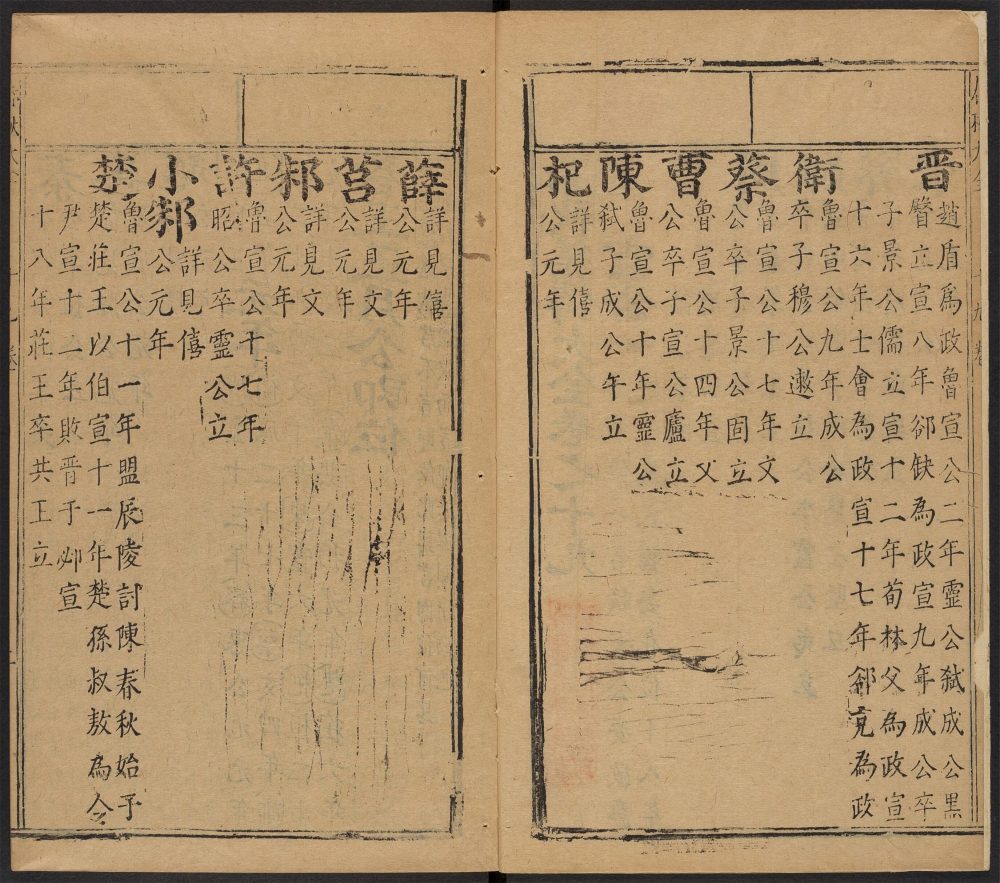 晋
趙盾爲政魯宣公二年靈公弑成公黑
臀立宣八年郤缺為政宣九年成公卒
子景公儒立宣十二年荀林父為政宣
十六年士會為政宣十七年郤克為政
衛
魯宣公九年成公
卒子穆公遬立
蔡
魯宣公十七年文
公卒子景公固立
曹
魯宣公十四年文
公卒子宣公廬立
陳
魯宣公十年靈公
弑子成公午立
杞
詳見僖
公元年
薛
詳見僖
公元年
莒
詳見文
公元年
邾
詳見文
公元年
許
魯宣公十七年
昭公卒靈公立
小邾
詳見僖
公元年
楚
魯宣公十一年盟辰陵討陳春秋始予
楚莊王以伯宣十一年楚孫叔敖為令
尹宣十二年敗晋于邲宣
十八年莊王卒共王立